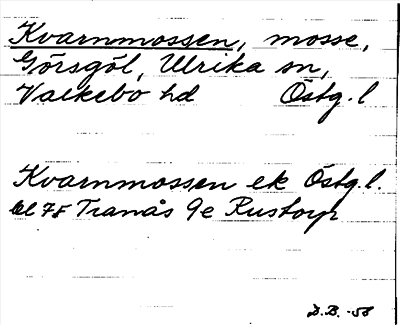 Kvarnmossen, mosse,
Görsgöl, Ulrika sn,
Valkebo hd Östg. l
Kvarnmossen ek Östg. l.
bl 75 Tranås 9e Rustorp
D.B. -58